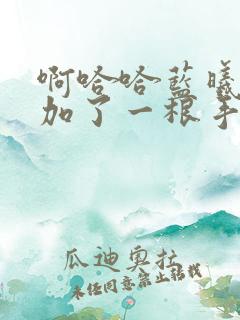 啊哈哈~蓝曦
加了一根手
瓜迪奥拉
未经同意禁止转载